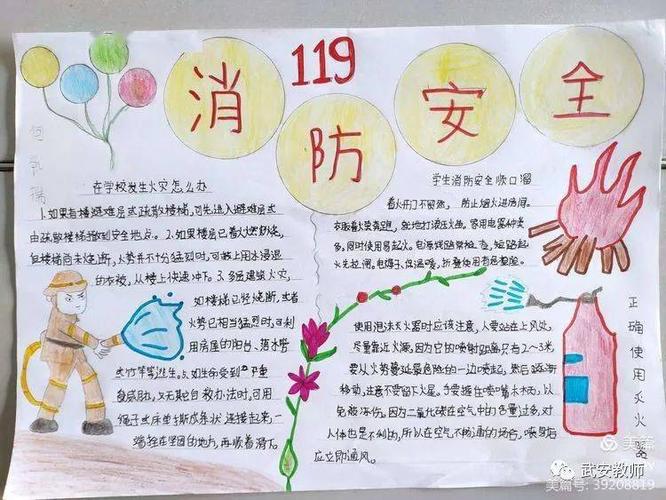 119
消防安全
在学校发生火灾怎么办
1.如果有楼避难层或疏散楼梯,可先进入避难层或
由疏散楼梯撤到安全地点。2.如果楼层已着火燃烧,
但楼梯尚未烧断,火势并不十分猛烈时,可披上用水浸湿
的衣被,从楼上快速冲下。3.多层建筑火灾,
如楼梯已经烧断,或者
火势已相当猛烈时,可利
用房屋的阳台、落水管
或竹竿等逃生。4.如生命受到严重
威胁,又无其它自救办法时,可用
绳子或床单撕成条状连接起来,一
端拴在坚固的地方,再顺着滑下。
学生消防安全顺口溜
着火开门不留然,防止烟火进房间
衣服着火莫奔跑,就地打滚压火
家用电器种类
多,同时使用易起火。电源线路常检查,短路起
火先拉闸。电熨子、低温
使用泡沫灭火器时应该注意,人要站在上风处,
尽量靠近火源,因为它的喷射距离只有2~3米,
要从火势蔓延最危险的一边喷起,然后逐渐
移动,注意不要留下火星。手要握在喷嘴木柄,以
免被冻伤。因为二氧化碳在空气中的含量过多,对
人体也是不利的,所以在空气不畅通的场合,喷身后
应立即通风。
正确使用灭火器
美篇
武安教师
美篇号:39208819